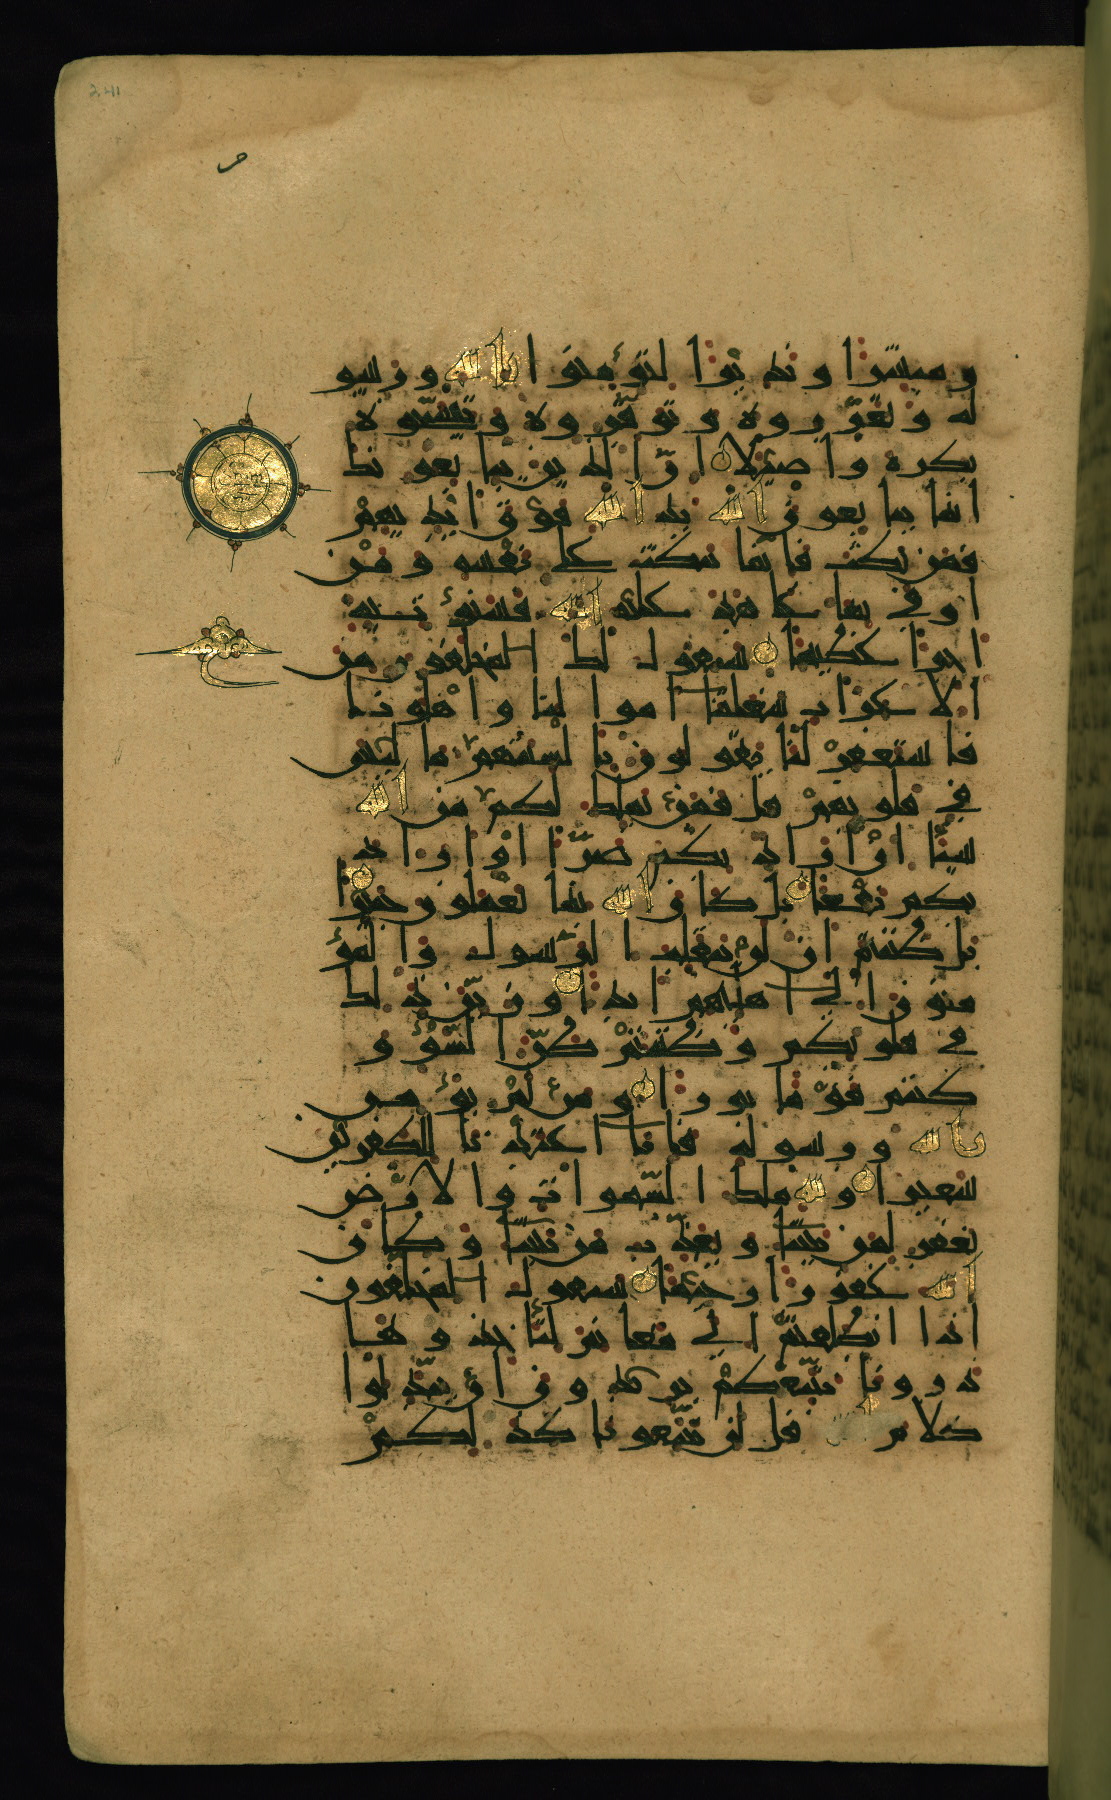 241
ومبشرا ونذيرا لتؤمنوا بالله ورسو
له وتعزروه وتوقروه وتسبحوه
بكرة واصيلا ان الذين يبايعونك
انما يبايعون الله يد الله فوق ايديهم
فمن نكث فانما ينكث على نفسه ومن
اوفى بما عاهد عليه الله فسنؤتيه
اجرا عظيما سيقول لك المخلفون من
الاعراب شغلتنا اموالنا واهلونا
فاستغفر لنا يقولون بالسنتهم ما ليس
في قلوبهم قل فمن يملك لكم من الله
شيئا ان اراد بكم ضرا او اراد
بكم نفعا بل كان الله بما تعملون خبيرا
بل ظننتم ان لن ينقلب الرسول والمؤ
منون الى اهليهم ابدا وزين ذلك
في قلوبكم وظننتم ظن السوء و
كنتم قوما بورا ومن لم يؤمن
بالله ورسوله فانا اعتدنا للكفرين
سعيرا ولله ملك السموات والارض
يغفر لمن يشا ويعذب من يشا وكان
الله غفورا رحيما سيقول المخلفون
اذا انطلقتم الى مغانم لتاخذوها
ذرونا نتبعكم يريدون ان يبدلوا
كلام الله قل لن تتبعونا كذلكم